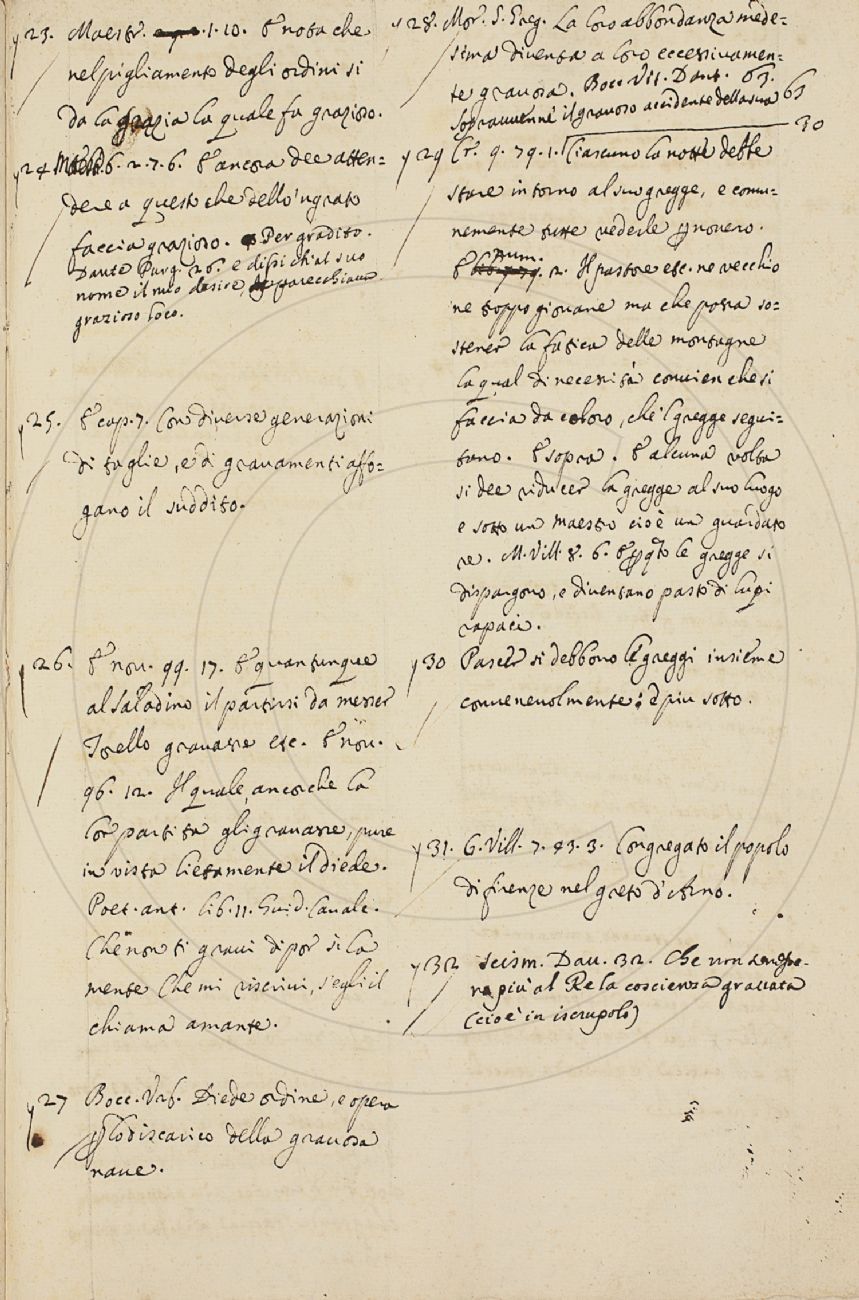 23. Maestr. 1. 10. E nota che
nel pigliamento degli ordini si
da la grazia la quale fa grazioso.
24 6. 2. 7. 6. E ancora dee atten=
dere a questo che dello 'ngrato
faccia grazioso. Per gradito.
Dante Purg. 26. e dissi ch'al suo
nome il mio desire, apparecchiava
grazioso loco.
25. E cap. 7. Con diverse generazioni
di taglie, e di gravamenti affo=
gano il suddito.
26. E nov. 99. 17. E quantunque
al Saladino il partirsi da messer
Torello gravasse etc. E nov.
96. 12. Il quale, ancorche la
lor partita gli gravasse, pure
in vista lietamente il diede.
Poet. ant. lib. 11. Guid. Cavalc.
Che non ti gravi di por sì la
mente Che mi riscrivi, s'egli il
chiama amante.
27 Bocc. Urb. Diede ordine, e opera
p lo discarico della gravosa
nave.
28. Mor. S. Greg. La loro abbondanza mede=
sima diventa a loro eccessivamen=
te gravosa. Bocc. Vit. Dant. 63.
Sopravvenne il gravoso accidente della sua 63
30
29 Cr. 9. 79. 1. Ciascuno la notte debbe
stare intorno al suo gregge, e comu=
nemente tutte vederle p novero.
E num. 2. Il pastore etc. ne vecchio
ne troppo giovane ma che possa so=
stener la fatica delle montagne
la qual di necessità convien che si
faccia da coloro, che 'l gregge segui=
tano. E sopra. E alcuna volta
si dee riducer la gregge al suo luogo
e sotto un maestro cioè un guardato
re. M. Vill. 8. 6. E pqto le gregge si
dispargono, e diventano pasto di lupi
rapaci.
30 Pascer si debbono le greggi insieme
convenevolmente: e piu sotto.
31. G. Vill. 7. 83. 3. Congregato il popolo
di firenze nel greto d'Arno.
32 Scism. Dav. 32. Che non
piu al Re la coscienza gravata
(cioè in iscrupolo)